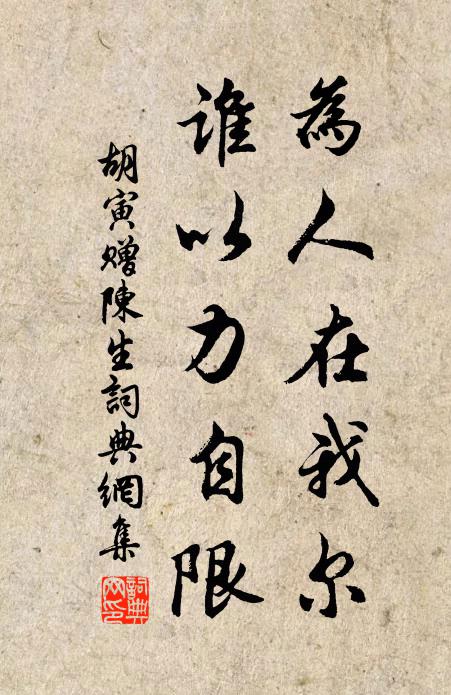 為人在我尔
誰以力自限
胡寅贈陳生詞典網集
詞典网印